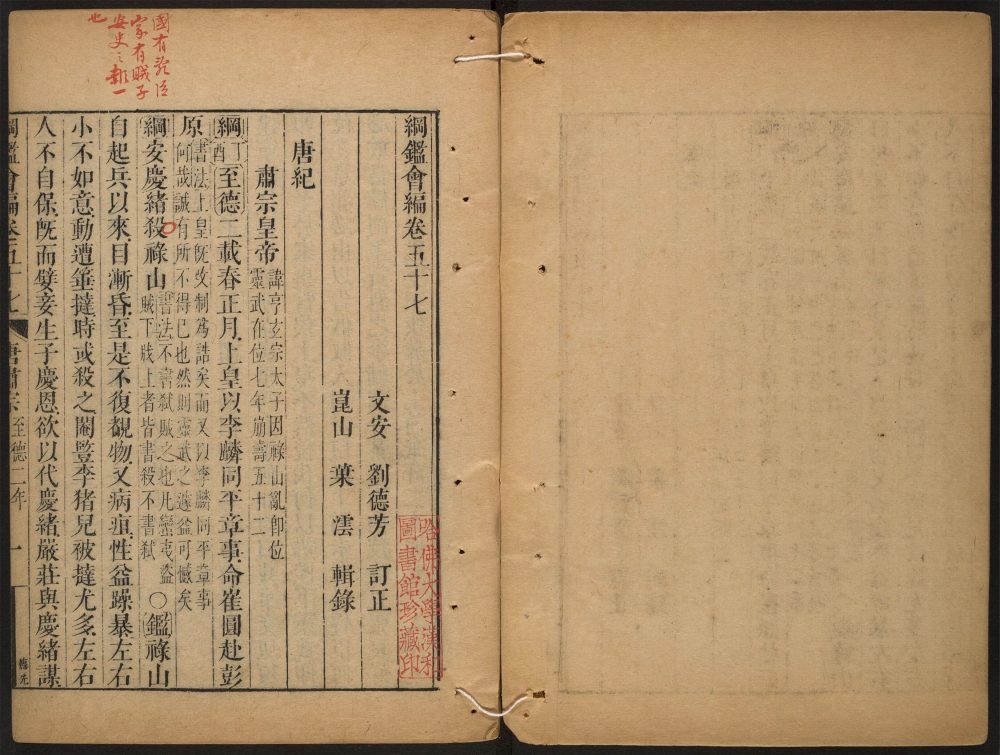 綱鑑會編卷五十七
文安 劉德芳 訂正
崑山 葉澐 輯錄
唐紀
肅宗皇帝
諱亨玄宗太子因祿山亂卽位
靈武在位七年崩壽五十二
綱丁酉至德二載春正月上皇以李麟同平章事命崔圓赴彭
原
書法上皇旣改制爲誥矣而又以李麟同平章事
何哉誠有所不得已也然則靈武之遽益可憾矣
綱安慶緒殺祿山
書法不書弑賊之也凡蠻夷盜
賊下戕上者皆書殺不書弑
○鑑祿山
自起兵以來目漸昏至是不復覩物又病疽性益躁暴左右
小不如意動遭箠撻時或殺之閹豎李猪兒被撻尤多左右
人不自保旣而嬖妾生子慶恩欲以代慶緒嚴莊與慶緒謀
綱鑑會編卷五十七
唐肅宗
至德二年
一
國有
臣
家有賊子
安史之報一
也
哈佛大學漢和
圖書館珍藏印